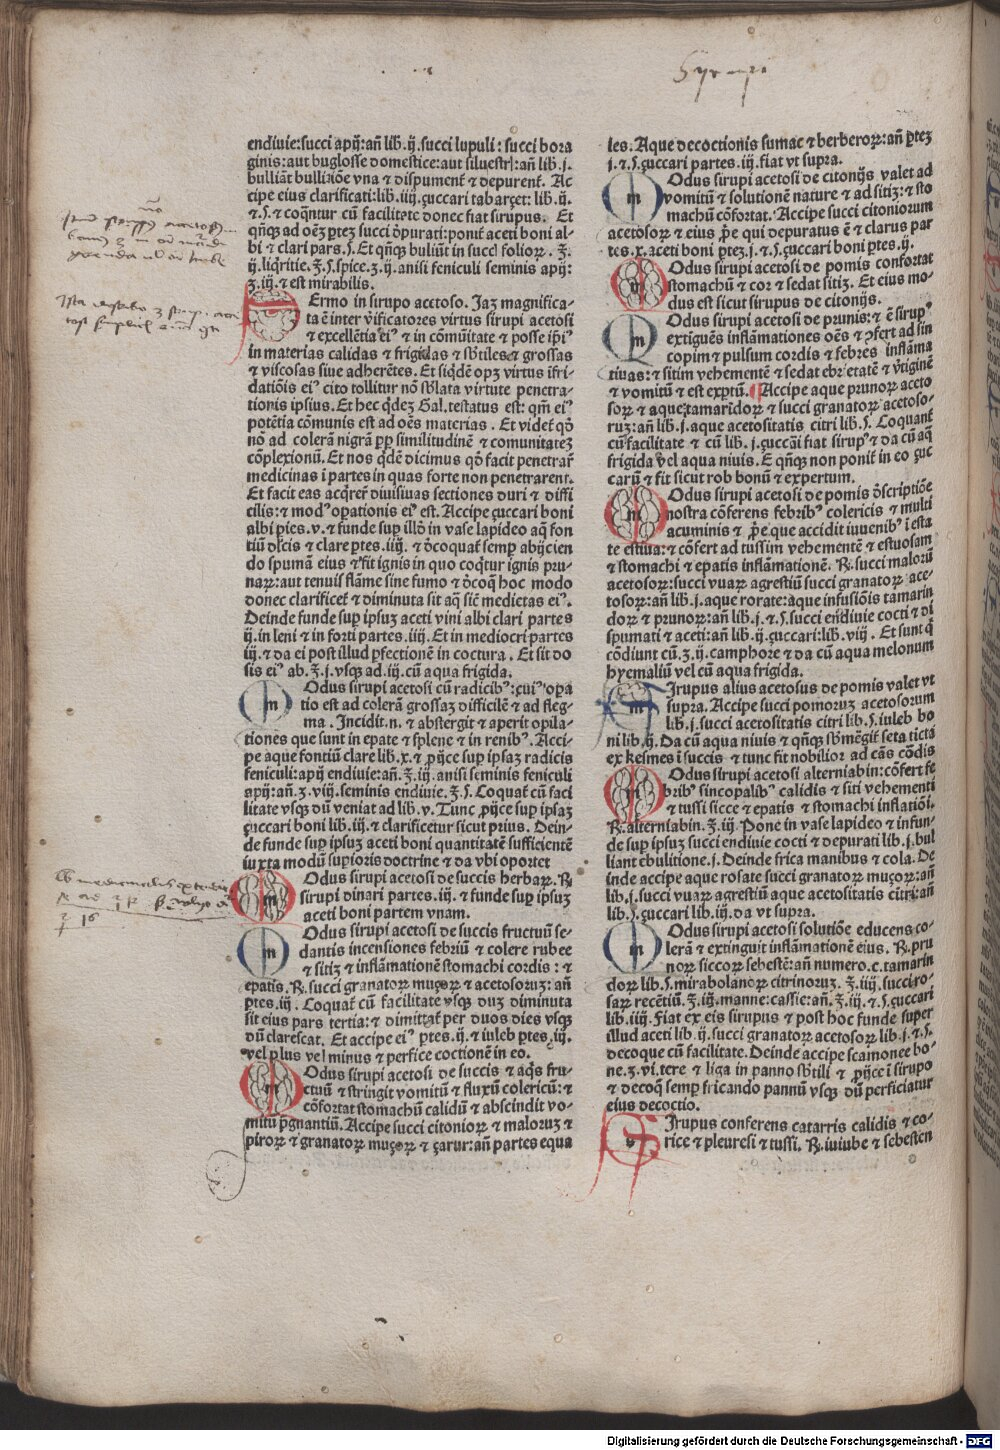 Syrupi
endiuie:succi apij:añ lib.ij.succi lupuli:succi bora
ginis:aut buglosse domestice:aut siluestr̄:añ lib.j.
bulliāt bullitiōe vna ⁊ dispument̄ ⁊ depurent̄. Ac
cipe eius clarificati:lib.iiij.çuccari tabarçet:lib.ij.
⁊.ſ.⁊ coq̄ntur cū facilitate donec fiat sirupus. Et
qñq̄ꝫ ad oēꝫ ptes succi
bi ⁊ clari pars.ſ. Et qñqꝫ buliūt in succī folioꝝ.ʒ.
ij.liqritie.ʒ.ſ.spice.ʒ.ij.anisi feniculi seminis apij:
ʒ.iij.⁊ est mirabilis.
SErmo in sirupo acetoso. Jaꝫ magnifica-
ta ē inter virtus sirupi acetosi
⁊ excellētia eiꝰ ⁊ in cōmūitate ⁊ posse ip̄iꝰ
in materias calidas ⁊ frigidas ⁊ sb̄tiles ⁊ grossas
⁊ viscosas siue adherētes. Et siqdē opꝫ virtus īfri-
datiōis eiꝰ cito tollitur nō sb̄lata virtute penetra-
tionis ipsius. Et hec qdeꝫ Gal.testatus est: qm̄ eiꝰ
potētia cōmunis est ad oēs materias. Et videt̄ qō
nō ad colerā nigrā pp similitudinē ⁊ comunitateꝫ
cōplexionū. Et nos qdē dicimus qō facit penetrar̄
medicinas ī partes in quas forte non penetrarent.
Et facit eas acqrer̄ diuisiuas sectiones duri ⁊ diffi
cilis: ⁊ modꝰ opationis eiꝰ est. Accipe çuccari boni
albi ptes.v.⁊ funde sup illō in vase lapideo aq̄ fon
tiū dlcis ⁊ clare ptes.iiij.⁊ dcoquat̄ semp abijcien
do spumā eius ⁊ fit ignis in quo coqtur ignis pru-
naꝝ:aut tenuis flāme sine fumo ⁊ dcoq̄ hoc modo
donec clarificet̄ ⁊ diminuta sit aq̄ siē medietas eiꝰ.
Deinde funde sup ipsuꝫ aceti vini albi clari partes
ij.in leni ⁊ in forti partes.iiij.Et in mediocri partes
iij.⁊ da ei post illud pfectionē in coctura. Et sit do
sis eiꝰ ab.ʒ.j.vsqꝫ ad.iij.cū aqua frigida.
MOdus sirupi acetosi cū radicibꝰ:cuiꝰ opa
tio est ad colerā grossaꝫ difficilē ⁊ ad fleg-
ma. Incidit.n.⁊ abstergit ⁊ aperit opila-
tiones que sunt in epate ⁊ splene ⁊ in renibꝰ. Acci-
pe aque fontiū clare lib.x.⁊ pijce sup ipsaꝫ radicis
feniculi:apij endiuie:añ.ʒ.iij.anisi seminis feniculi
apij:añ.ʒ.viij.seminis endiuie.ʒ.ſ.Coquat̄ cū faci
litate vsqꝫ dū veniat ad lib.v. Tunc pijce sup ipsaꝫ
çuccari boni lib.iij.⁊ clarificetur sicut prius. Dein-
de funde sup ipsuꝫ aceti boni quantitatē sufficientē
iuxta modū supioris doctrine ⁊ da vbi oportet
MOdus sirupi acetosi de succis herbaꝝ. ℞
sirupi dinari partes.iij.⁊ funde sup ipsuꝫ
aceti boni partem vnam.
MOdus sirupi acetosi de succis fructuū se-
dantis incensiones febriū ⁊ colere rubee
⁊ sitiꝫ ⁊ inflāmationē stomachi cordis:⁊
epatis.℞.succi granatoꝝ muçoꝝ ⁊ acetosoruꝫ:añ
ptes.iij. Coquat̄ cū facilitate vsqꝫ duꝫ diminuta
sit eius pars tertia:⁊ dimittat̄ per duos dies vsqꝫ
dū clarescat. Et accipe eiꝰ ptes.ij.⁊ iuleb ptes.iij.
vel plus vel minus ⁊ perfice coctionē in eo.
MOdus sirupi acetosi de succis ⁊ aq̄s fru-
ctuū ⁊ stringit vomitū ⁊ fluxū colericū:⁊
cōfortat stomachū calidū ⁊ abscindit vo-
mitū pgnantiū. Accipe succi citonioꝝ ⁊ maloruꝫ ⁊
piroꝝ ⁊ granatoꝝ muçoꝝ ⁊ çarur:añ partes equa
les. Aque decoctionis sumac ⁊ berberoꝝ:añ pteꝫ
j.⁊.ſ.çuccari partes.iij.fiat vt supra.
MOdus sirupi acetosi de citonijs valet ad
vomitū ⁊ solutionē nature ⁊ ad sitiꝫ:⁊ sto
machū cōfortat. Accipe succi citoniorum
acetosoꝝ ⁊ eius pe qui depuratus ē ⁊ clarus par
tes.x.aceti boni pteꝫ.j.⁊.ſ.çuccari boni ptes.ij.
MOdus sirupi acetosi de pomis confortat
stomachū ⁊ cor ⁊ sedat sitiꝫ. Et eius mo-
dus est sicut sirupus de citonijs.
MOdus sirupi acetosi de prunis:⁊ ē sirupꝰ
extiguēs inflāmationes oēs ⁊ ꝯfert ad sin
copim ⁊ pulsum cordis ⁊ febres inflāma
tiuas:⁊ sitim vehementē ⁊ sedat ebrietatē ⁊ v̄tiginē
⁊ vomitū ⁊ est exptū. Accipe aque prunoꝝ aceto
soꝝ ⁊ aque tamarīdoꝝ ⁊ succi granatoꝝ acetoso-
ruꝫ:añ lib.j.aque acetositatis citri lib.ſ. Coquant̄
cū facilitate ⁊ cū lib.j.çuccari fiat sirupꝰ ⁊ da cū aq̄
frigida vel aqua niuis. E qñqꝫ non ponit̄ in eo çuc
carū ⁊ fit sicut rob bonū ⁊ expertum.
MOdus sirupi acetosi de pomis dscriptiōe
nostra cōferens febribꝰ colericis ⁊ multi
acuminis ⁊ ppe que accidit iuuenibꝰ ī esta
te estiua:⁊ cōfert ad tussim vehementē ⁊ estuosam
⁊ stomachi ⁊ epatis inflāmationē. ℞.succi maloruꝫ
acetosoꝝ:succi vuaꝝ agrestiū succi granatoꝝ ace-
tosoꝝ:añ lib.j.aque rorate:aque infusiōis tamarin
doꝝ ⁊ prunoꝝ:añ lib.j.⁊.ſ.succi endiuie cocti ⁊ di
spumati ⁊ aceti:añ lib.ij.çuccari:lib.viij. Et sunt q̄
cōdiunt cū.ʒ.ij.camphore ⁊ da cū aqua melonum
hyemaliū vel cū aqua frigida.
SIrupus alius acetosus de pomis valet vt
supra. Accipe succi pomoruꝫ acetosorum
lib.j.succi acetositatis citri lib.ſ.iuleb bo
ni lib.ij. Da cū aqua niuis ⁊ qñqꝫ sb̄mēgit̄ seta ticta
ex kesmes ī succis ⁊ tunc fit nobilior ad cās cōdis
MOdus sirupi acetosi alterniabin:cōfert fe
bribꝰ sincopalibꝰ calidis ⁊ siti vehementi
⁊ tussi sicce ⁊ epatis ⁊ stomachi inflatiōi.
℞.alterniabin.ʒ.iij. Pone in vase lapideo ⁊ infun-
de sup ipsuꝫ succi endiuie cocti ⁊ depurati lib.j.bul
liant ebulitione.j. Deinde frica manibus ⁊ cola. De
inde accipe aque rosate succi granatoꝝ muçoꝝ:an̄
lib.j.succi vuaꝝ agrestiū aque acetositatis citri:añ
lib.ſ.çuccari lib.iij.da vt supra.
MOdus sirupi acetosi solutiōe educens co-
lerā ⁊ extinguit inflāmationē eius. ℞.pru
noꝝ siccoꝝ sebestē:añ numero.c.tamarin
doꝝ lib.ſ.mirabolanoꝝ citrinoruꝫ.ʒ.iiij.succi ro-
saꝝ recētiū.ʒ.iij.manne:cassie:añ.ʒ.iij.⁊.ſ.çuccari
lib.iiij.Fiat ex eis sirupus ⁊ post hoc funde super
illud aceti lib.ij.succi granatoꝝ acetosoꝝ lib.j.⁊.ſ.
decoque cū facilitate. Deinde accipe scamonee bo-
ne.ʒ.vi.tere ⁊ liga in panno sb̄tili ⁊ pijce ī sirupo
⁊ decoq̄ semp fricando pannū vsqꝫ dū perficiatur
eius decoctio.
SIrupus conferens catarris calidis ⁊ co-
rice ⁊ pleuresi ⁊ tussi. ℞.iuiube ⁊ sebesten
Digitalisierung gefördert durch die Deutsche Forschungsgemeinschaft - DFG